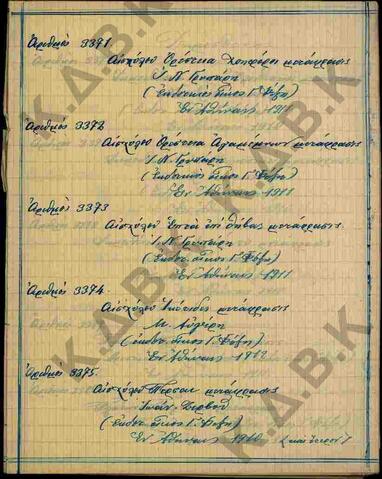 Αριθμός 3371
Αισχύλου Ορέστεια Χοηφόροι μετάφρασις
Ι. Ν. Γρυπάρη
(Εκδοτικός οίκος Γ. Φέξη)
Εν Αθήναις 1911
Αριθμός 3372
Αισχύλου Ορέστεια Αγαμέμνων μετάφρασις
Ι. Ν. Γρυπάρη
(Εκδοτικός οίκος Γ. Φέξη)
Εν Αθήναις 1911
Αριθμός 3373
Αισχύλου Επτά επί Θήβας μετάφρασις
Ι. Ν. Γρυπάρη
(Εκδοτ. οίκος Γ. Φέξη)
Εν Αθήναις 1911
Αριθμός 3374
Αισχύλου Ικέτιδες μετάφρασις
Μ. Αυγέρη
(εκδοτ. οίκος Γ. Φέξη)
Εν Αθήναις 1912
Αριθμός 3375
Αισχύλου Πέρσαι μετάφρασις
Ιωάν. Ζερβού
(Εκδοτ. οίκος Γ. Φέξη)
Εν Αθήναις 1910 (και έτερον)
Κ.Δ.Β.Κ
Κ.Δ.Β.Κ
Κ.Δ.Β.Κ